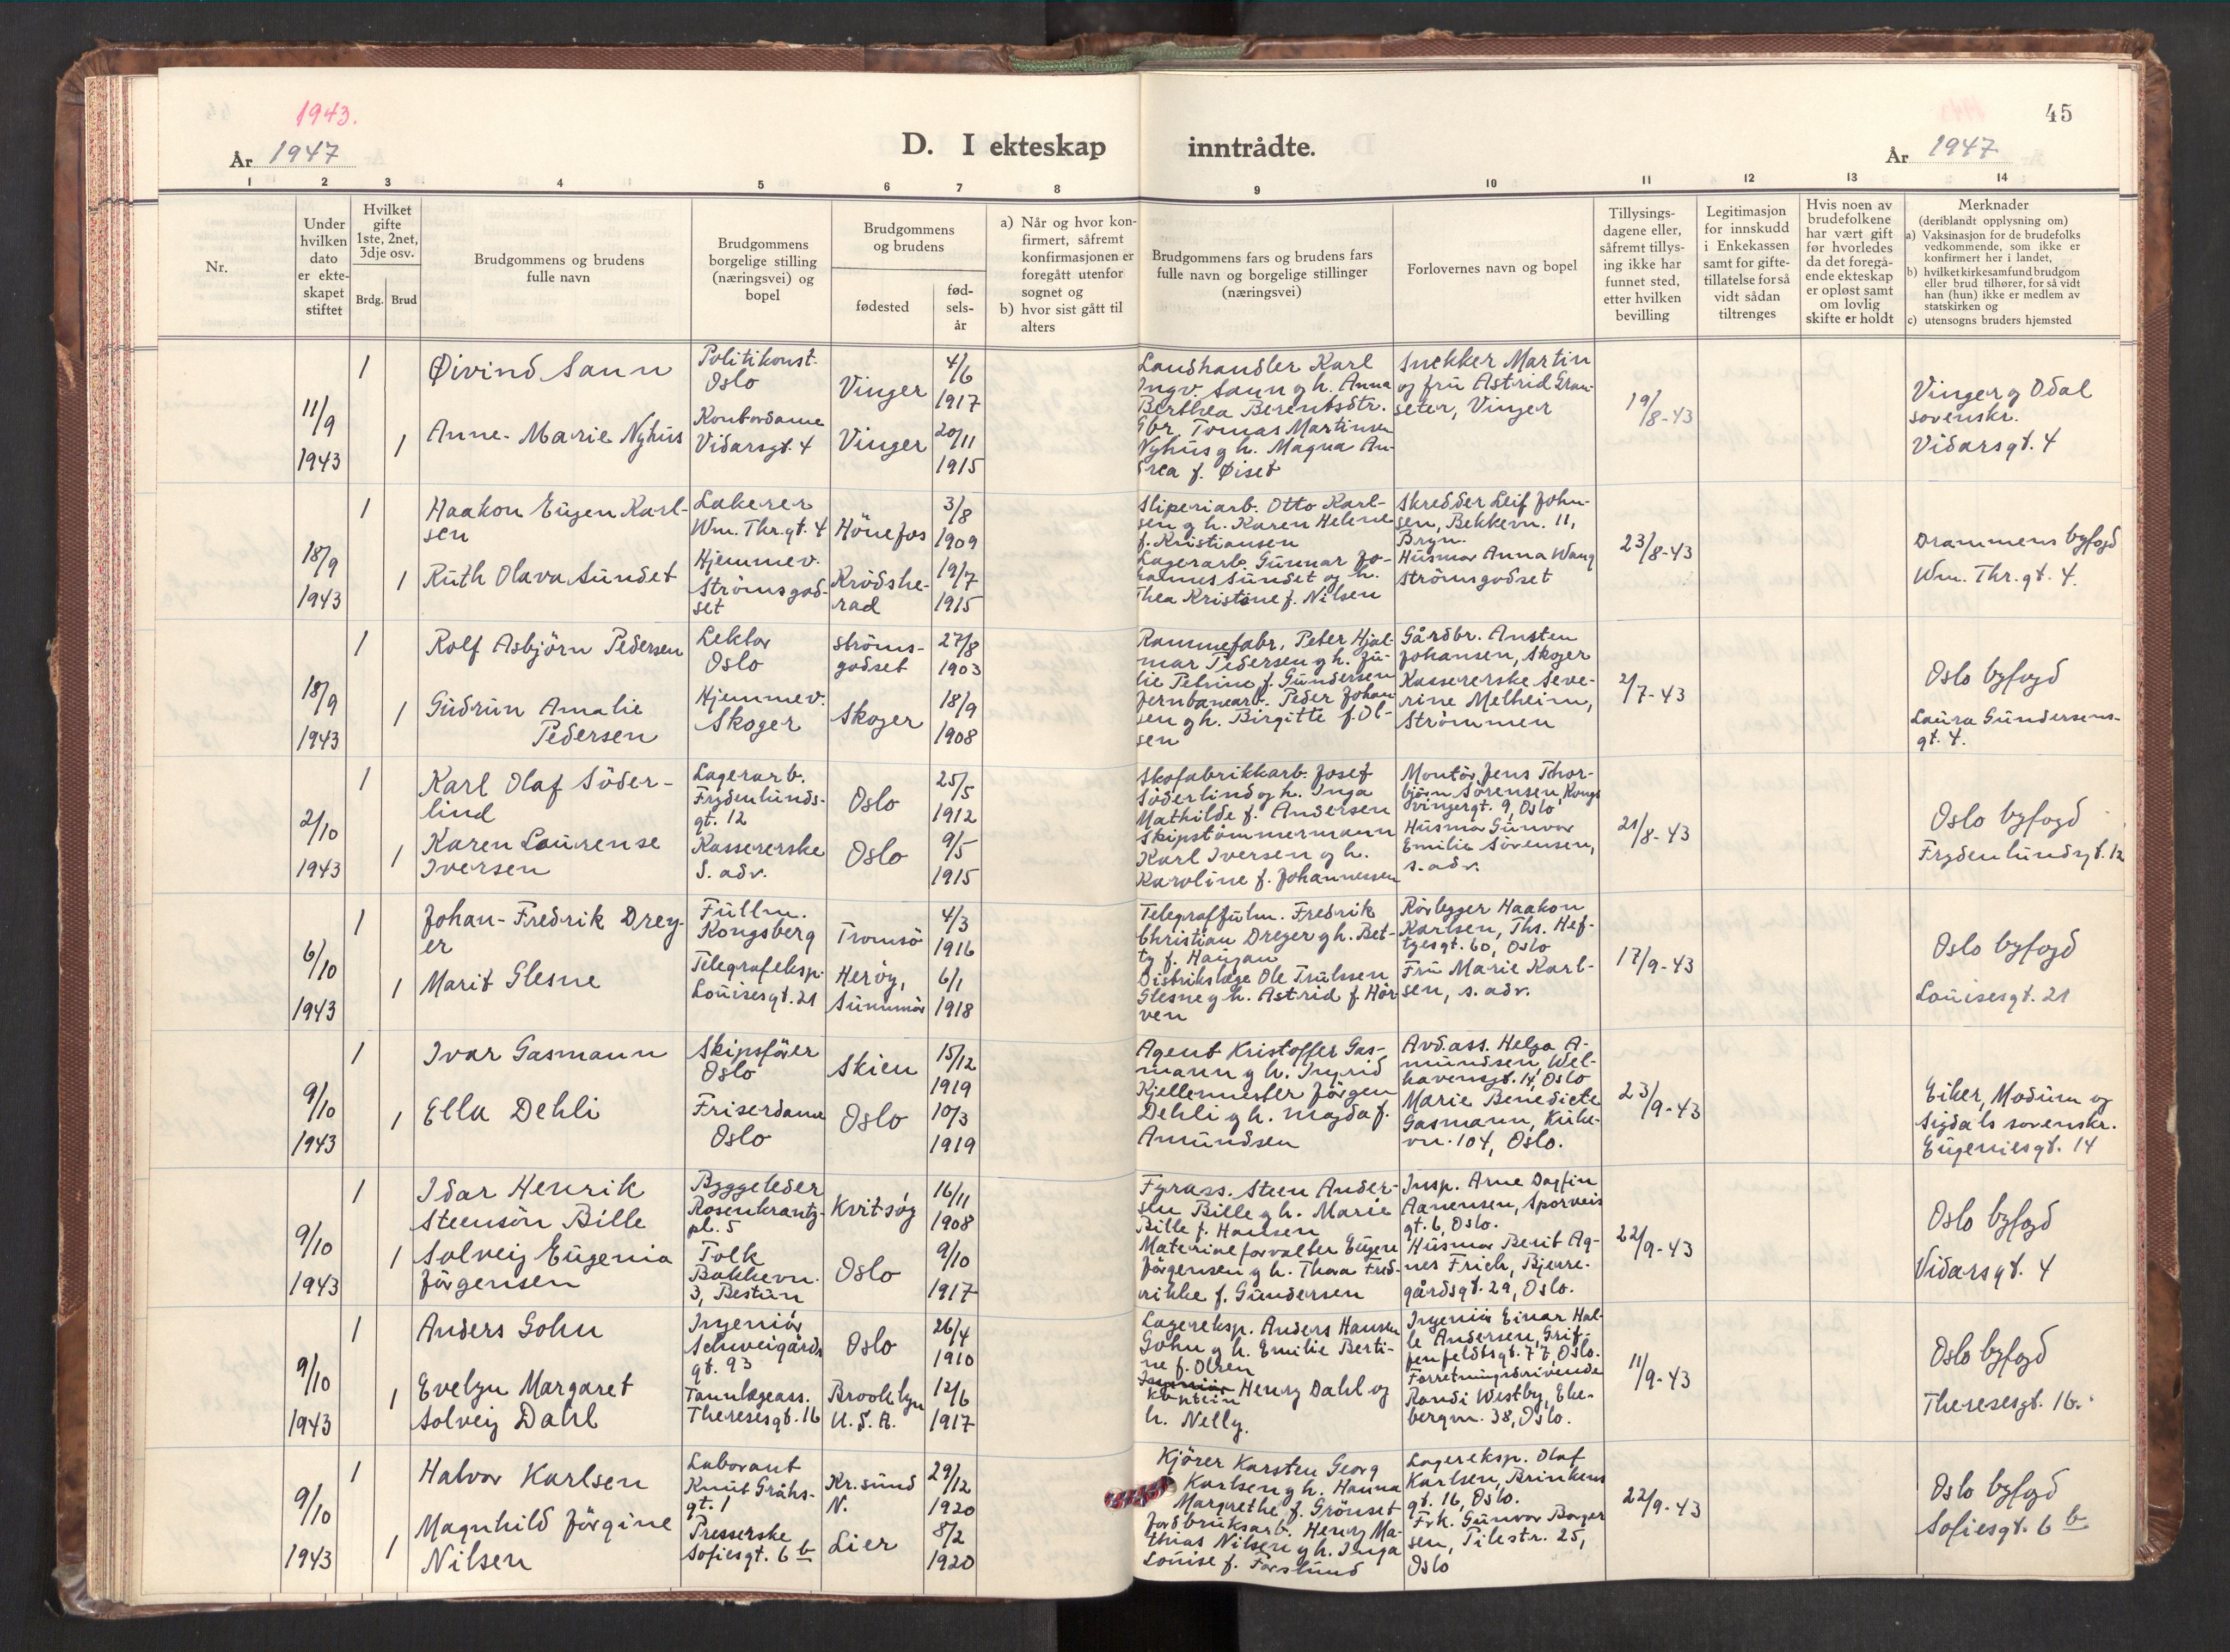 1943.
År 1947
D. I ekteskap inntrådte.
45
År 1947
1 2 3 4 5 6 7 8 9 10 11 12 13 14
Nr.
Under hvilken dato er ekteskapet stiftet
Hvilket gifte 1ste, 2net, 3dje osv.
Brdg. Brud
Brudgommens og brudens fulle navn
Brudgommens borgelige stilling (næringsvei) og bopel
Brudgommens og brudens
fødested
fød-sels-år
a) Når og hvor konfirmert, såfremt konfirmasjonen er foregått utenfor sognet og
b) hvor sist gått til alters
Brudgommens fars og brudens fars fulle navn og borgelige stillinger (næringsvei)
Forlovernes navn og bopel
Tillysings-dagene eller, såfremt tillysing ikke har funnet sted, etter hvilken bevilling
Legitimasjon for innskudd i Enkekassen samt for giftetillatelse forså vidt sådan tiltrenges
Hvis noen av brudefolkene har vært gift før hvorledes da det foregående ekteskap er opløst samt om lovlig skifte er holdt
Merknader
(deriblandt opplysning om)
a) Vaksinasjon for de brudefolks vedkommende, som ikke er konfirmert her i landet,
b) hvilket kirkesamfund brudgom eller brud tilhører, for så vidt han (hun) ikke er medlem av statskirken og
c) utensogns bruders hjemsted
11/9 1943
1
Øivind Saun
Politikonst.
Oslo
Vinger
4/6
1917
1
Anne-Marie Nyhus
Kontordame
Vidarsgt. 4
Vinger
20/11
1915
Landhandler Karl
Ingv. Saun g h. Anna
Berthea Berentsdtr.
Gbr. Tomas Martinsen
Nyhus g h. Magna An-
drea f. Øiset
Snekker Martin
og fru Astrid Gran-
seter, Vinger
19/8-43
Vinger g Odal
sorenskr.
Vidarsgt. 4
18/9 1943
1
Haakon Eugen Karl-
sen
Lakerer
Wm. Thr.gt. 4
Hönefos
3/8
1909
1
Ruth Olava Sundet
Hjemmev.
Strömsgod-
set
Krödshe-
rad
19/7
1915
Sliperiarb. Otto Karl-
sen g h. Karen Helene
f. Kristiansen
Lagerarb. Gunnar Jo-
hannes Sundet og h.
Thea Kristine f. Nilsen
Skredder Leif John-
sen, Bekkevn. 11,
Bryn.
Husmor Anna Wang
Strömsgodset
23/8-43
Drammens byfogd
Wm. Thr. gt. 4.
18/9 1943
1
Rolf Asbjörn Pedersen
Lektor
Oslo
Ströms-
godset
27/8
1903
1
Gudrun Amalie
Pedersen
Hjemmev.
Skoger
Skoger
18/9
1908
Rammefabr. Peter Hjal-
mar Pedersen g h. Ju-
lie Petrine f. Gundersen
Jernbanearb. Peder Johan
sen g h. Birgitte f. Ol-
sen
Gårdbr. Ansten
Johansen, Skoger
Kassererske Seve-
rine Melheim,
Strömmen
2/7-43
Oslo byfogd
Laura Gundersens-
gt. 4.
2/10 1943
1
Karl Olaf Söder-
lind
Lagerarb.
Frydenlunds-
gt. 12
Oslo
25/5
1912
1
Karen Laurense
Iversen
Kassererske
S. adr.
Oslo
9/5
1915
Skofabrikkarb. Josef
Söderlind og h. Inga
Mathilde f. Andersen
Skipstömmermann
Karl Iversen g h.
Karoline f. Johannessen
Montör Jens Thor-
björn Sörensen, Kongs
vingergt. 9, Oslo
Husmor Gunvor
Emilie Sörensen,
s. adr.
21/8-43
Oslo byfogd
Frydenlundgt. 12
6/10 1943
1
Johan-Fredrik Drey-
er
Fullm.
Kongsberg
Tromsö
4/3
1916
1
Marit Glesne
Telegrafeksp.
Louisesgt. 21
Heröy,
Sunnmör
6/1
1918
Telegraffulm. Fredrik
Christian Dreyer g h. Bet-
ty f. Haugan
Distrikslæge Ole Trulssen
Glesne g h. Astrid f. Hör
ven
Rörlegger Haakon
Karlsen, Ths. Hef-
tyesgt. 60, Oslo
Fru Marie Karl-
sen, s. adr.
17/9-43
Oslo byfogd
Louisesgt. 21
9/10 1943
1
Ivar Gasmann
Skipsförer
Oslo
Skien
15/12
1919
1
Ella Dehli
Friserdame
Oslo
Oslo
10/3
1919
Agent Kristoffer Gas-
mann g h. Ingrid
Kjellermester Jörgen
Dehli g h. Magda f.
Amundsen
Avd.ass. Helga A-
mundsen, Wel-
havensgt. 14, Oslo
Marie Benedicte
Gasmann, Kirke-
vn. 104, Oslo.
23/9-43
Eiker, Modum og
Sigdals sorenskr.
Eugeniesgt. 14
9/10 1943
1
Idar Henrik
Steensön Bille
Byggeleder
Rosenkrantz-
pl. 5
Kvitsöy
16/11
1908
1
Solveig Eugenia
Jörgensen
Tolk
Bakkevn.
3, Bestun
Oslo
9/10
1917
Fyrass. Steen Ander-
sen Bille g h. Marie
Bille f. Hansen
Materialforvalter Eugene
Jörgensen g h. Thora Fred-
rikke f. Gundersen
Insp. Arne Dagfin
Aanensen, Sporveis
gt. 6, Oslo.
Husmor Berit Ag-
nes Frich, Bjerre-
gårdsgt. 29, Oslo.
22/9-43
Oslo byfogd
Vidarsgt. 4
9/10 1943
1
Anders Gohn
Ingeniör
Schweigårds
gt. 93
Oslo
26/4
1910
1
Evelyn Margaret
Solveig Dahl
Tannlægeass.
Theresesgt. 16
Brooklyn
U.S.A.
12/6
1917
Lagereksp. Anders Hansen
Gohn g h. Emilie Berti-
ne f. Olsen
Henry Dahl og
h. Nelly.
Ingeniör Einar Hal-
le Andersen, Grif-
fenfeldtsgt. 77, Oslo.
Forretningsdrivende
Randi Westby, Eke-
bergvn. 38, Oslo.
11/9-43
Oslo byfogd
Theresesgt. 16.
9/10 1943
1
Halvor Karlsen
Laborant
Knut Gråhs-
gt. 1
Kr.sund
N.
29/12
1920
1
Magnhild Jörgine
Nilsen
Presserske
Sofiesgt. 6 b
Lier
8/2
1920
Kjörer Karsten Georg
Karlsen g h. Hanna
Margrethe f. Grönset
Jordbruksarb. Henry Ma-
thias Nilsen g h. Inga
Louise f. Forslund
Lagereksp. Olaf
Karlsen, Brinkens
gt. 16, Oslo.
Frk. Gunvor Borger
sen, Pilestr. 25,
Oslo
22/9-43
Oslo byfogd
Sofiesgt. 6 b